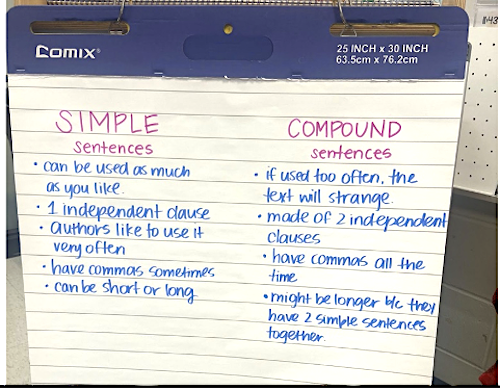 Comix®
25 INCH x 30 INCH
63.5cm x 76.2cm
SIMPLE
sentences
• can be used as much
as you like.
• 1 independent clause
• authors like to use it
very often
• have commas sometimes
• can be short or long
COMPOUND
sentences
• if used too often, the
text will strange.
• made of 2 independent
clauses
• have commas all the
time
• might be longer b/c they
have 2 simple sentences
together.